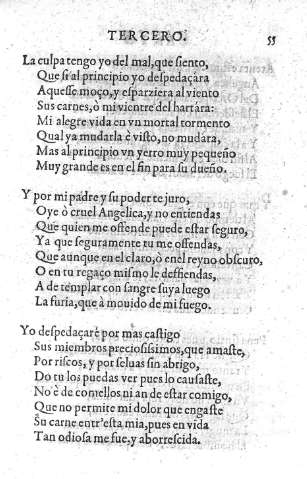 TERCERO. 55
La culpa tengo yo del mal, que siento,
Que si al principio yo despedaçára
Aquesse moço, y esparziera al viento
Sus carnes, ò mi vientre del hartára:
Mi alegre vida en vn mortal tormento
Qual ya mudarla è visto, no mudára,
Mas al principio vn yerro muy pequeño
Muy grande es en el fin para su dueño.
Y por mi padre y su poder te juro,
Oye ò cruel Angelica, y no entiendas
Que quien me ofende puede estar seguro,
Ya que seguramente tu me ofendas,
Que aunque en el claro, ò en el reyno obscuro,
O en tu regaço mismo le deffiendas,
A de templar con sangre suya luego
La furia, que à mouido de mi fuego.
Yo despedaçarè por mas castigo
Sus miembros preciosissimos, que amaste,
Por riscos, y por seluas sin abrigo,
Do tu los puedas ver pues lo causaste,
No è de comellos ni an de estar comigo,
Que no permite mi dolor que engaste
Su carne entr'esta mia, pues en vida
Tan odiosa me fue, y aborrescida.